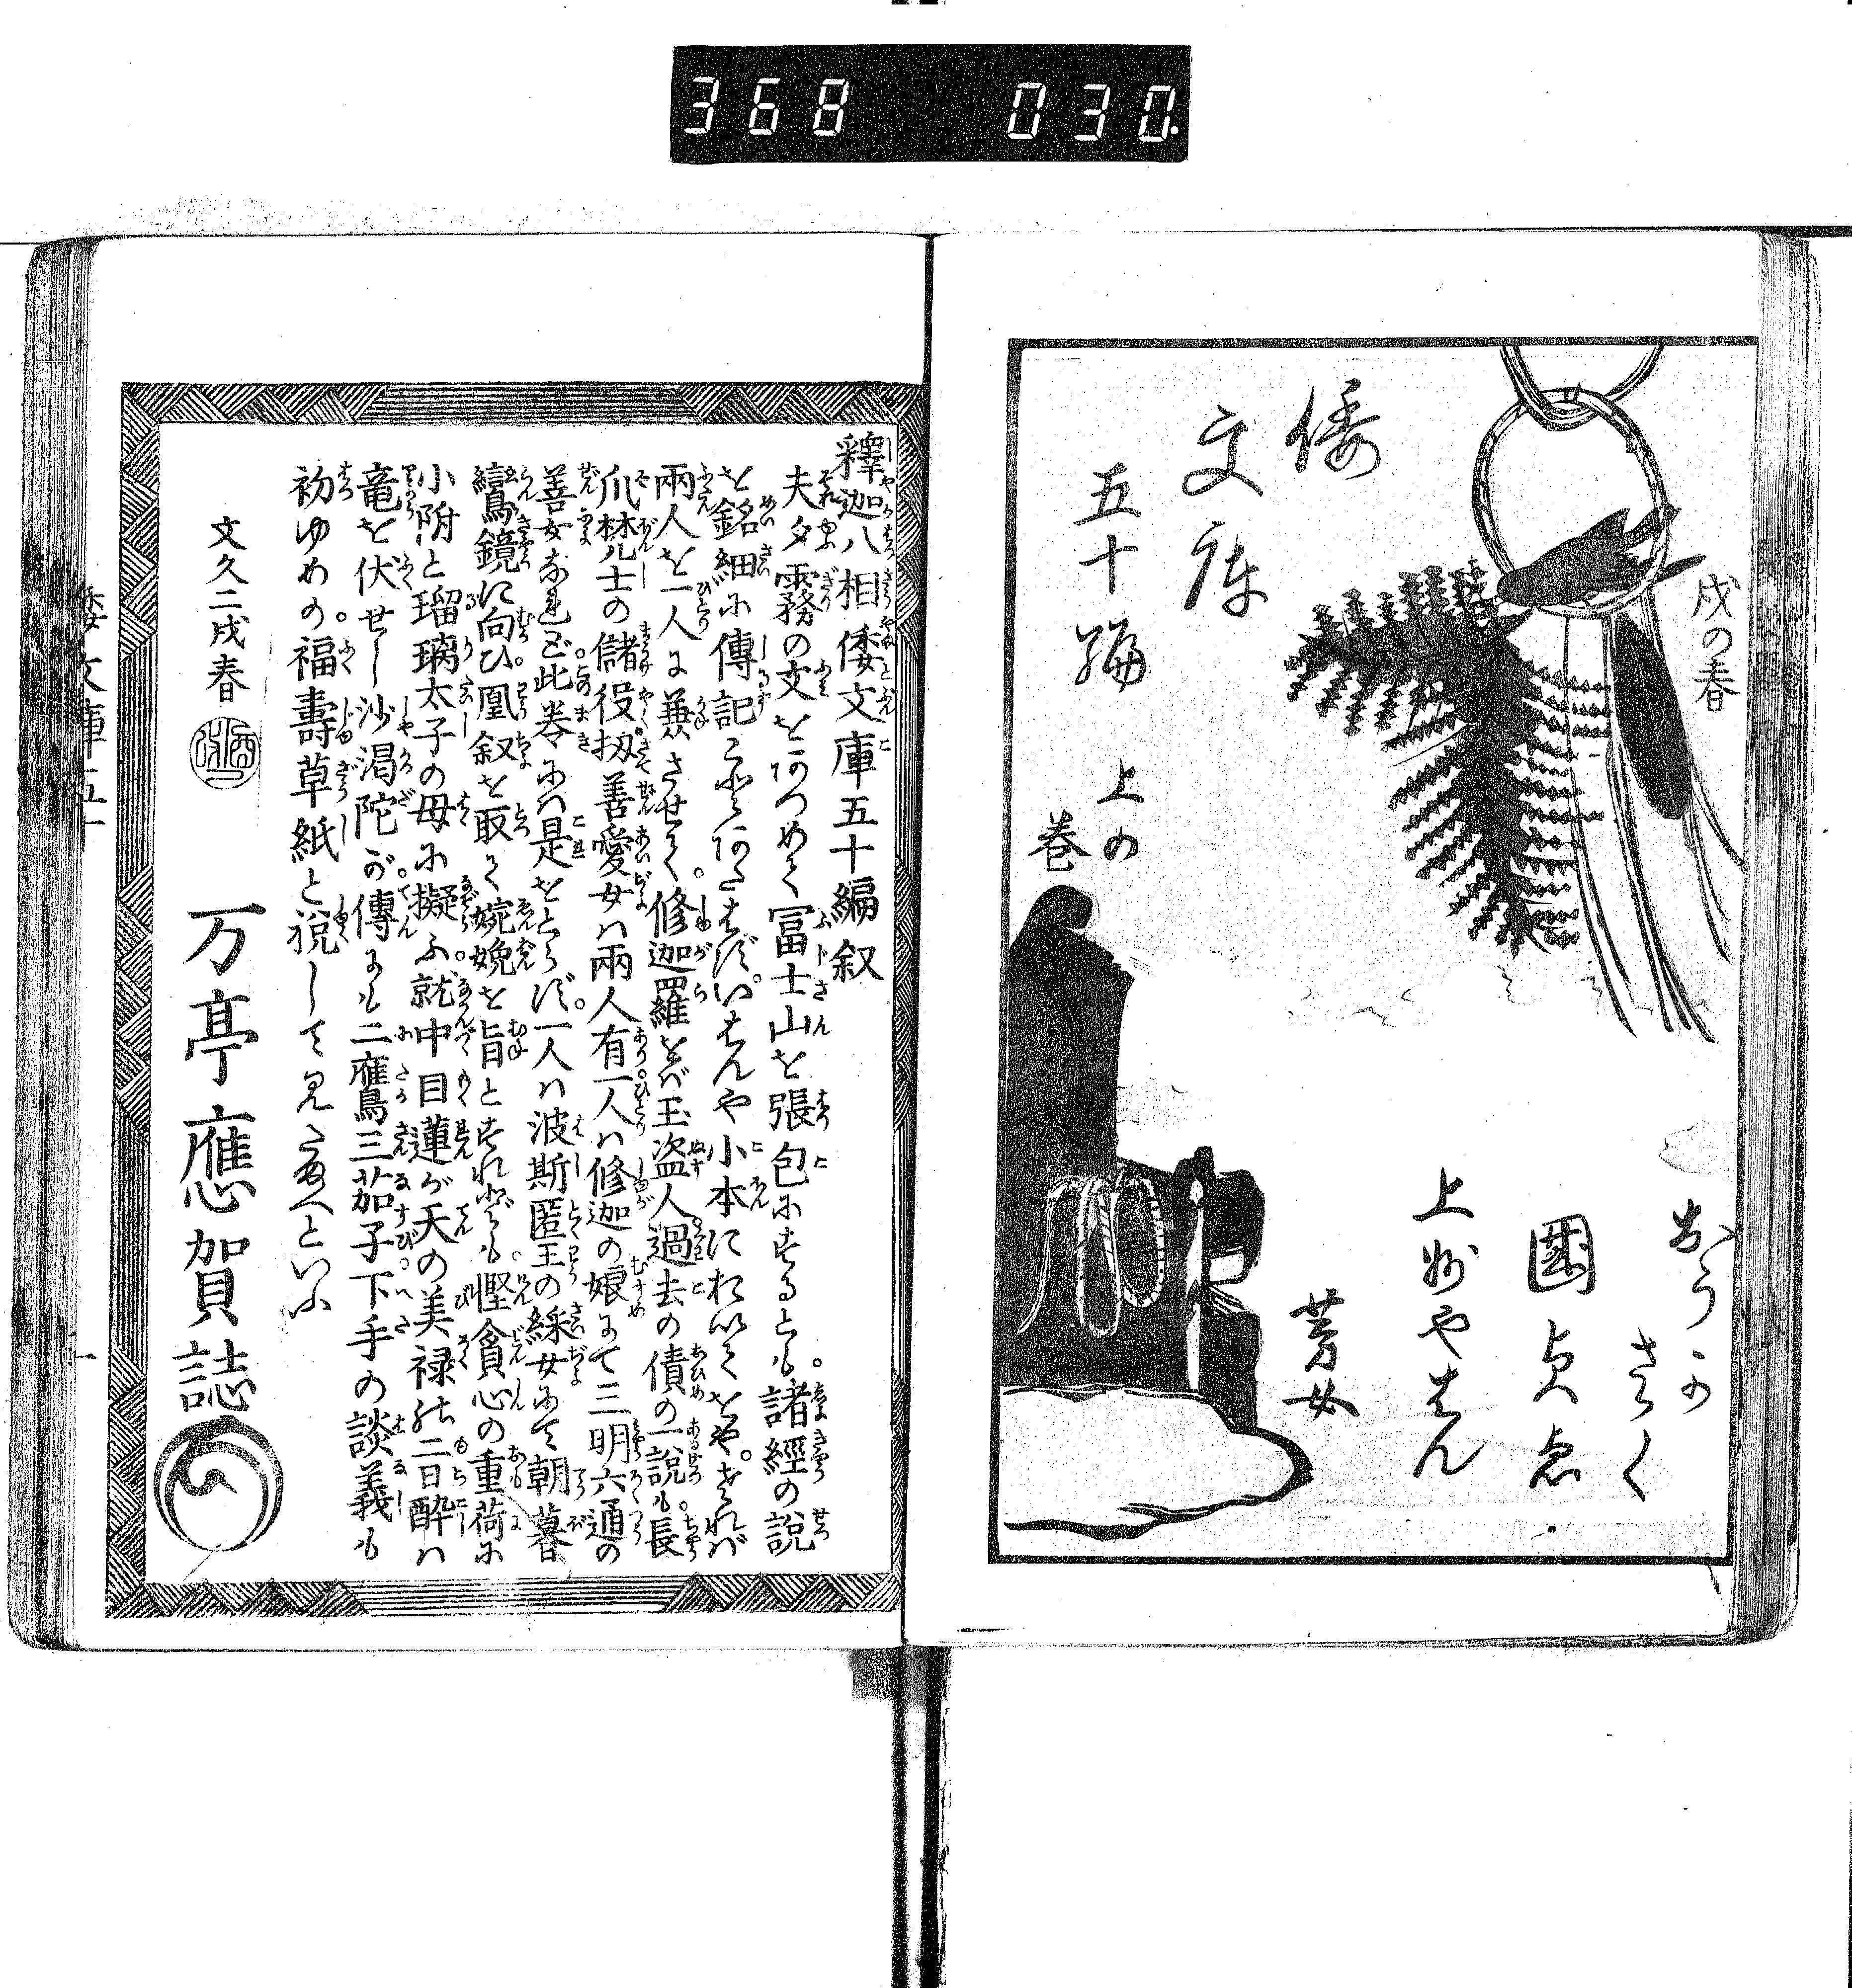 368 030
戌の春
倭
文庫
五十編
上の
巻
おうか
さく
國貞画
上州やはん
芳女
釋迦八相倭文庫五十編叙
夫夕霧の文をあつめて冨士山を張包にするとも。諸經の説
を銘細に傳記こと能はず。いはんや小本に於てをや。されば
兩人を一人に兼させて。修迦羅をば玉盗人過去の債の一説も。長
爪梵士の儲役。扨善愛女は兩人有。一人は修迦の娘にて三明六通の
善女なれど。此巻には是をとらず。一人は波斯匿王の綵女にて朝暮
鸞鏡に向ひ。凰釵を取て婉娩を旨とすれども。慳貪心の重荷に
小附と瑠璃太子の母に擬ふ。就中目蓮が天の美禄の二日酔は
竜を伏せし沙渇陀が。傳にも二鷹三茄子下手の談義も
初ゆめの。福壽草紙と説して見たまへといふ
文久二戌春
万亭應賀誌
倭文庫五十
一